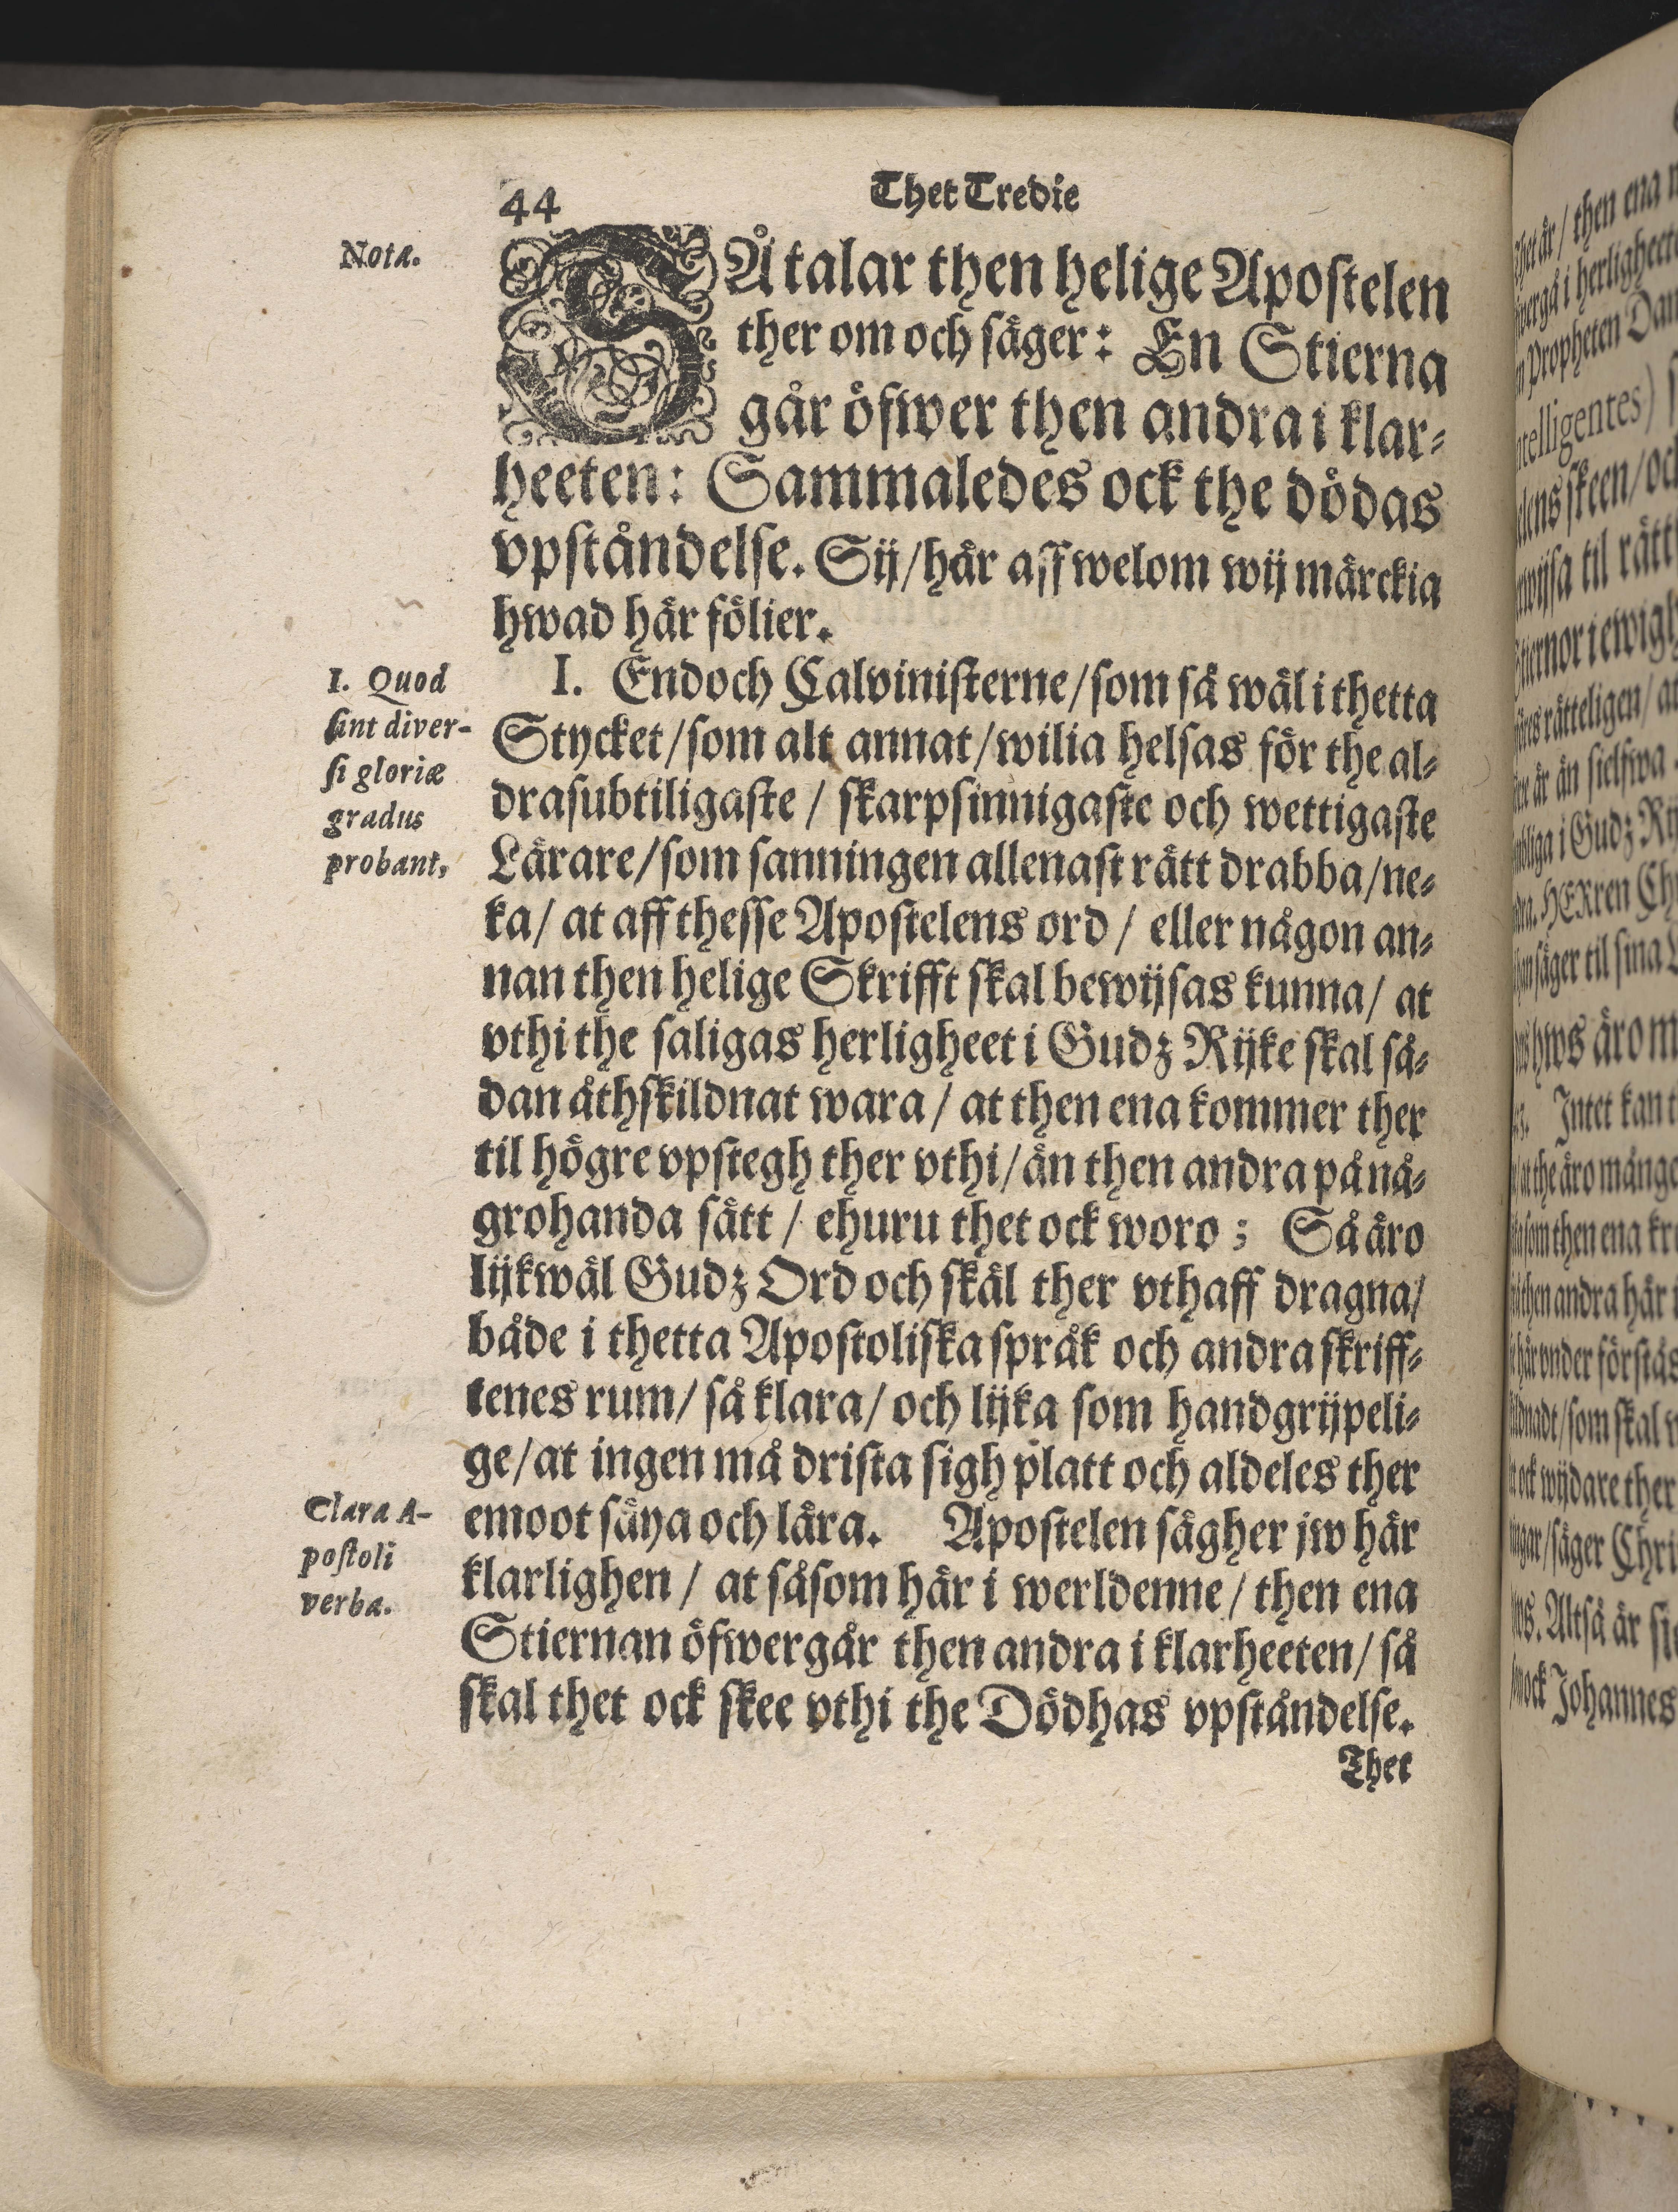 44
Thet Tredie
Nota.
SÅ talar then helige Apostelen
ther om och säger: En Stierna
går öfwer then andra i klar-
heeten: Sammaledes ock the dödas
vpståndelse. Sij/här aff welom wij märckia
hwad här fölier.
I. Quod
sint diver-
si gloriæ
gradus
probant,
I. Endoch Calvinisterne/som så wäl i thetta
Stycket/som alt annat/wilia helsas för the al-
drasubtiligaste / skarpsinnigaste och wettigaste
Lärare/som sanningen allenast rätt drabba/ne-
ka/ at aff thesse Apostelens ord / eller någon an-
nan then helige Skrifft skal bewijsas kunna/ at
vthi the saligas herligheet i Gudz Rijke skal så-
dan åthskildnat wara / at then ena kommer ther
til högre vpstegh ther vthi/än then andra på nå-
grohanda sätt / ehuru thet ock woro; Så äro
lijkwäl Gudz Ord och skäl ther vthaff dragna/
både i thetta Apostoliska språk och andra skriff-
tenes rum/ så klara/ och lijka som handgrijpeli-
ge/at ingen må drista sigh platt och aldeles ther
emoot säya och lära. Apostelen sägher jw här
klarlighen / at såsom här i werldenne/ then ena
Stiernan öfwergår then andra i klarheeten/ så
skal thet ock skee vthi the Dödhas vpståndelse.
Clara A-
postoli
verba.
Thet